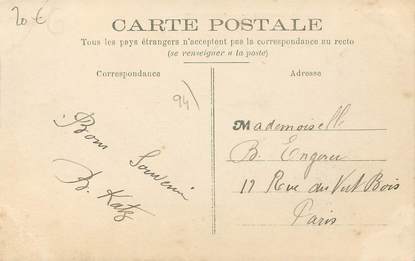 20 €
CARTE POSTALE
Tous les pays étrangers n'acceptent pas la correspondance au recto
(se renseigner à la poste)
Correspondance
94
Bon Souvenir
B. Katz
Adresse
Mademoiselle
B.
17 Rue du Vert Bois
Paris